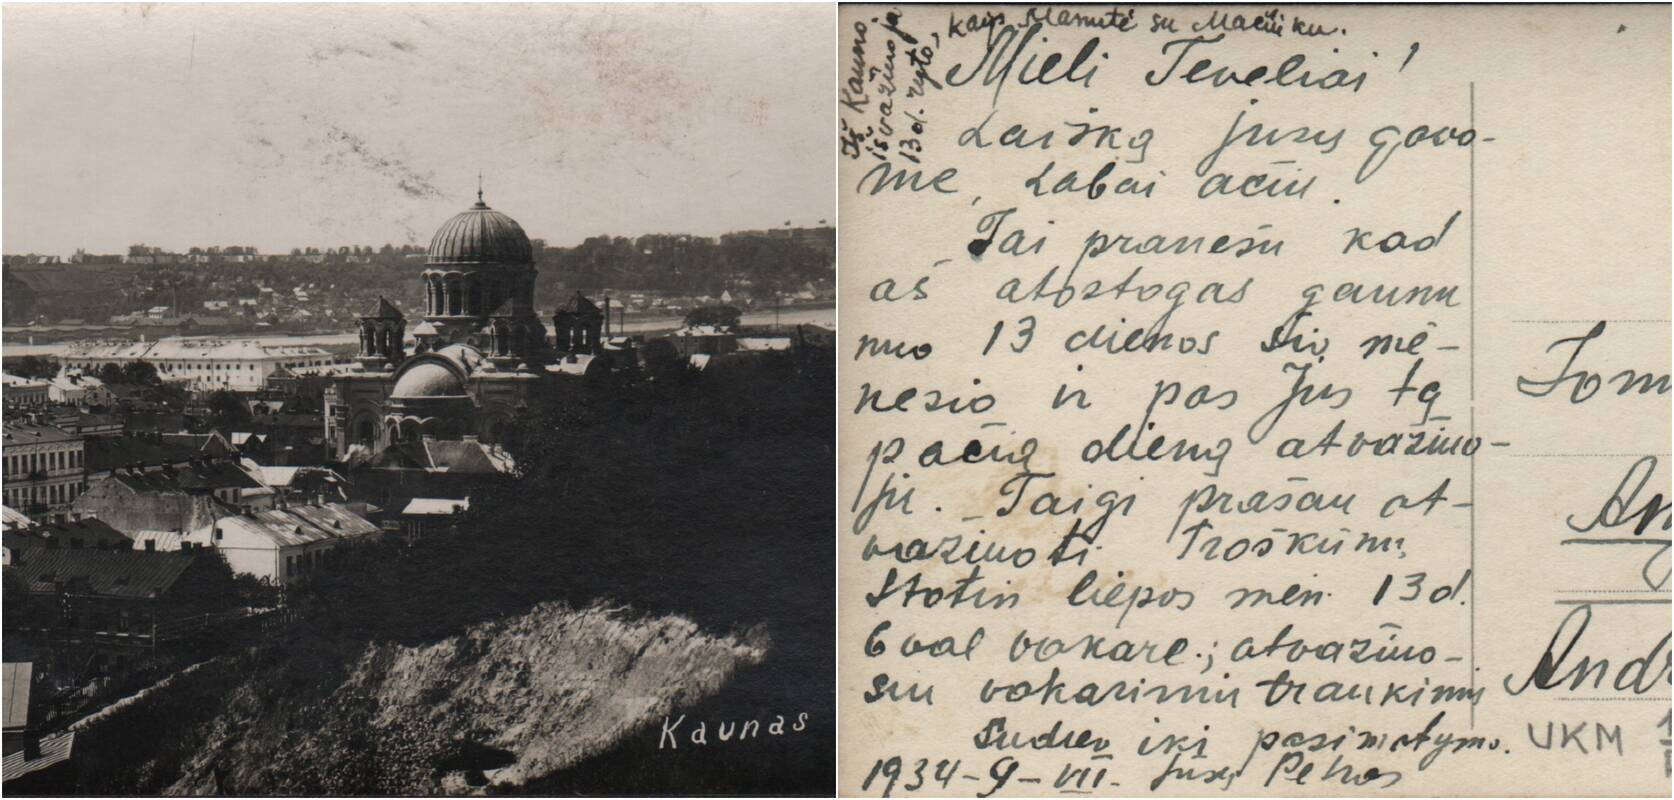 Kaunas
kaip Mamutė su Mačiuku.
Iš Kauno
išvažiuoja
13 d. ryto,
Mieli Teveliai!
Laišką jusų gavo-
me, Labai ačiu.
Tai pranešu kad
aš atostogas gaunu
nuo 13 dienos šio mė-
nesio ir pas Jus tą
pačią dieną atvažiuo-
ju. Taigi prašau at-
važiuoti Troškūnų
Stotin liepos mėn. 13 d.
6 val vakare.; atvažiuo-
siu vakariniu traukiniu
Sudiev iki pasimatymo.
1934-9-VII. Jusų Petras
Tom
An
Andr
UKM 1